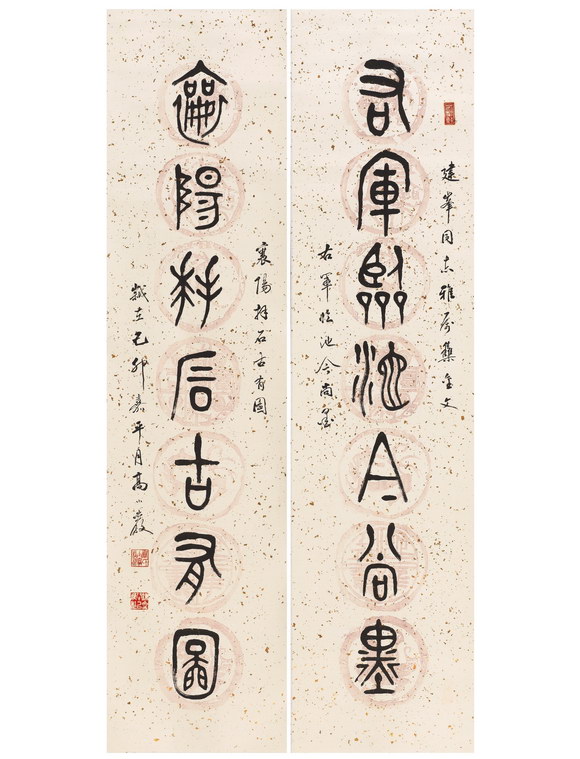 建峯同志雅屬集金文
右軍臨池今尚墨
右軍臨池今尚墨
襄陽拜石古有图
襄陽拜石古有圖
歲在己卯嘉平月高小巖